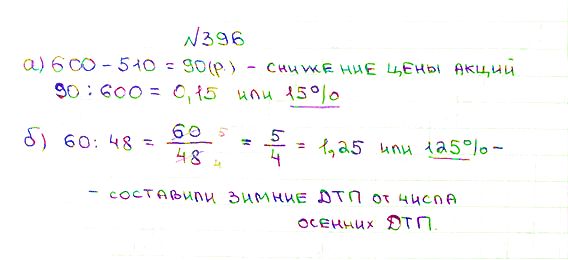 №396
а) 600 – 510 = 90(р.) – снижение цены акций
90 : 600 = 0,15 или 15%
б) 60 : 48 = 60/48 5 4 = 5/4 = 1,25 или 125% –
– составили зимние ДТП от числа
осенних ДТП.